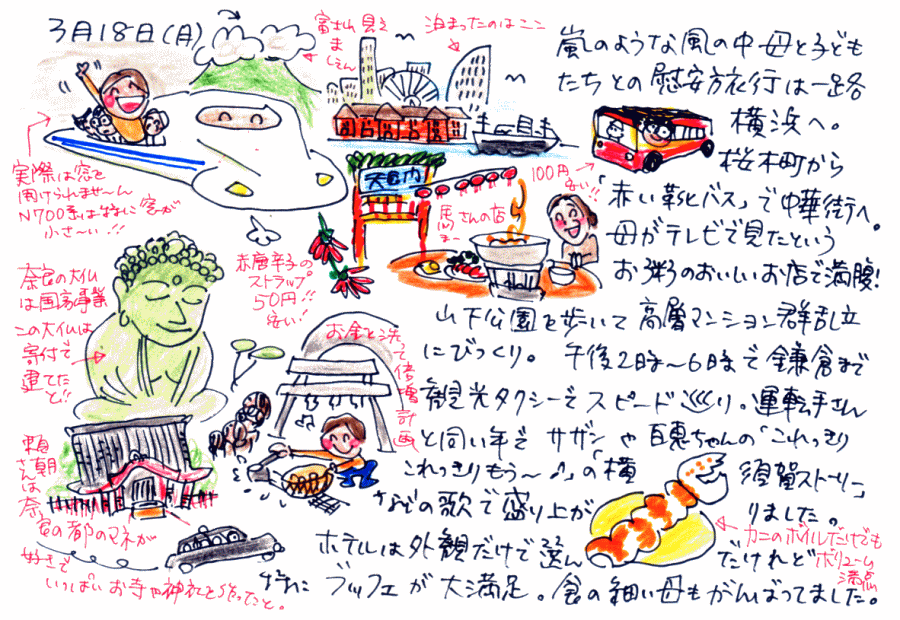 3月18日(月)
富士山見え
ま
しぇん
泊まったのはここ
嵐のような風の中 母と子ども
たちとの慰安旅行は一路
横浜へ。
桜木町から
「赤い靴バス」で中華街へ。
母がテレビで見たという
お粥のおいしいお店で満腹!
100円
安い!!
実際は窓を
開けられませーん
N700系は特に窓が
小さーい!!
馬さんの店
赤唐辛子の
ストラップ
50円!!
安い!
奈良の大仏
は国家事業
この大仏は
寄付で
建てた
と!!
お金を洗って倍増計画
山下公園を歩いて高層マンション群乱立
にびっくり。 午後2時〜6時で鎌倉まで
観光タクシーでスピード巡り。運転手さん
と同い年で サザンや百恵ちゃんの「これっきり
これっきりもう〜♪」の「横須賀ストーリー」
などの歌で盛り上がりました。
頼朝さんは奈
良の都のマネが
好きで
いっぱいお寺や神社を作ったと。
カニのボイルだけでも
ボリューム
満点
ホテルは外観だけで選んだけれど
特に ブッフェが大満足。食の細い母もがんばってました。